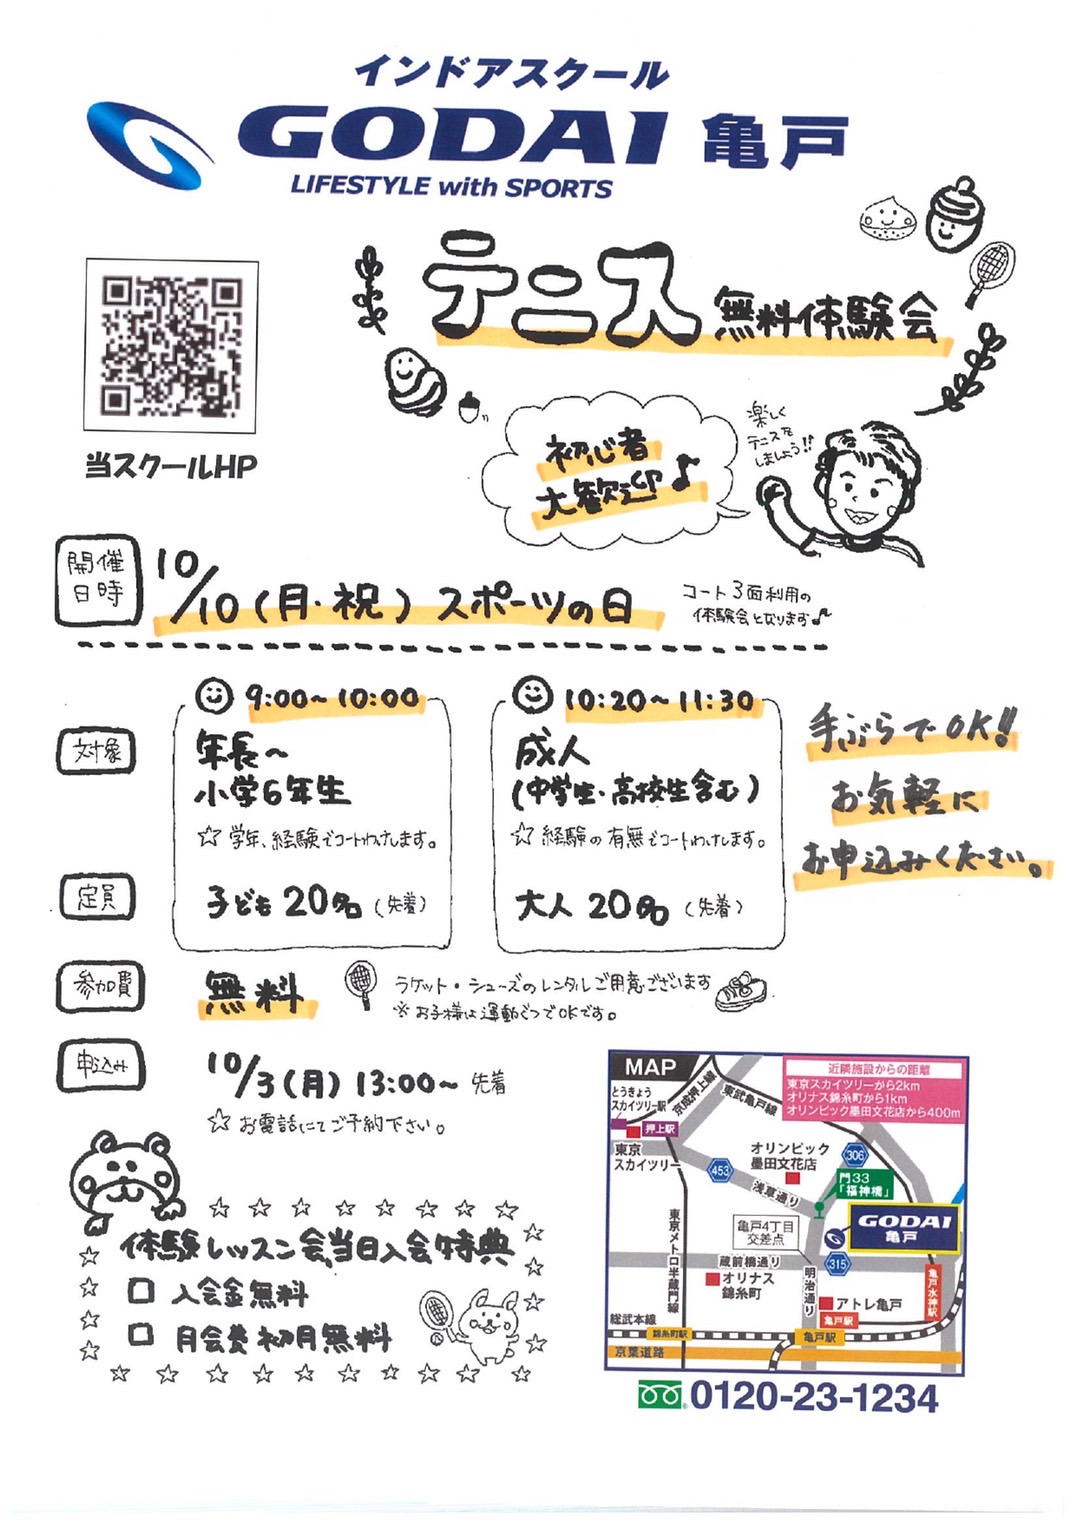 インドアスクール
GODAI 亀戸
LIFESTYLE with SPORTS
テニス 無料体験会
当スクールHP
初心者
大歓迎♪
楽しく
テニスを
しましょう!!
開催
日時
10/10(月・祝) スポーツの日
コート3面利用の
体験会となります♪
9:00~10:00
10:20~11:30
対象
年長~
小学6年生
☆学年、経験でコートわけします。
成人
(中学生・高校生含む)
☆経験の有無でコートわけします。
手ぶらでOK!!
お気軽に
お申込みください。
定員
子ども20名(先着)
大人20名(先着)
参加費
無料
ラケット・シューズのレンタルご用意ございます
※お子様は運動ぐつでOKです。
申込み
10/3(月)13:00~ 先着
☆お電話にてご予約下さい。
体験レッスン会当日入会特典
□ 入会金無料
□ 月会費初月無料
MAP
近隣施設からの距離
東京スカイツリーから2km
オリナス錦糸町から1km
オリンピック墨田文花店から400m
とうきょう
スカイツリー駅
京成押上線
東武亀戸線
押上駅
東京
スカイツリー
オリンピック
墨田文花店
306
453
門33
「福神橋」
浅草通り
亀戸4丁目
交差点
GODAI
亀戸
東京メトロ半蔵門線
蔵前橋通り
315
オリナス
錦糸町
明治通り
アトレ亀戸
亀戸駅
亀戸水神駅
総武本線
錦糸町駅
亀戸駅
京葉道路
0120-23-1234